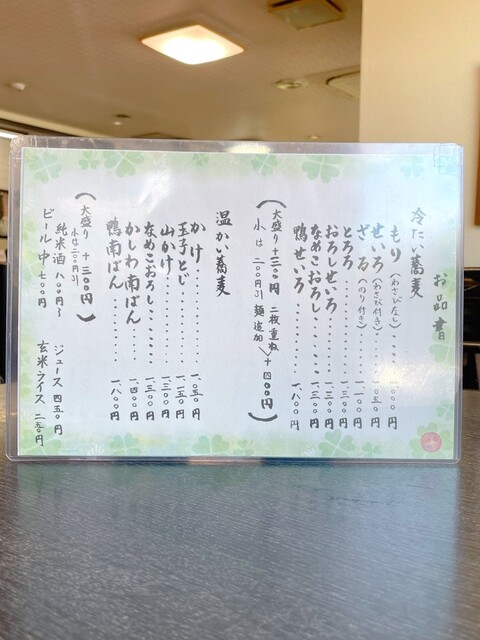 お品書
冷たい蕎麦
もり(わさびなし)‥‥一、〇〇〇円
せいろ(わさび付き)‥‥一、〇五〇円
ざる(のり付き)‥‥一、一〇〇円
とろろ‥‥‥‥一、三〇〇円
おろしせいろ‥‥‥‥一、三〇〇円
なめこおろし‥‥‥‥一、三〇〇円
鴨せいろ‥‥‥‥一、八〇〇円
(大盛り+三〇〇円 二枚重ね
小は二〇〇円引 麺追加 >+四〇〇円)
温かい蕎麦
かけ‥‥‥‥一、〇五〇円
玉子とじ‥‥‥‥一、一五〇円
山かけ‥‥‥‥一、三〇〇円
なめこおろし‥‥‥‥一、三〇〇円
かしわ南ばん‥‥‥‥一、四〇〇円
鴨南ばん‥‥‥‥一、八〇〇円
(大盛り+三〇〇円
小は二〇〇円引)
純米酒 八〇〇円〜 ジュース 四五〇円
ビール中 七〇〇円 玄米ライス 二五〇円